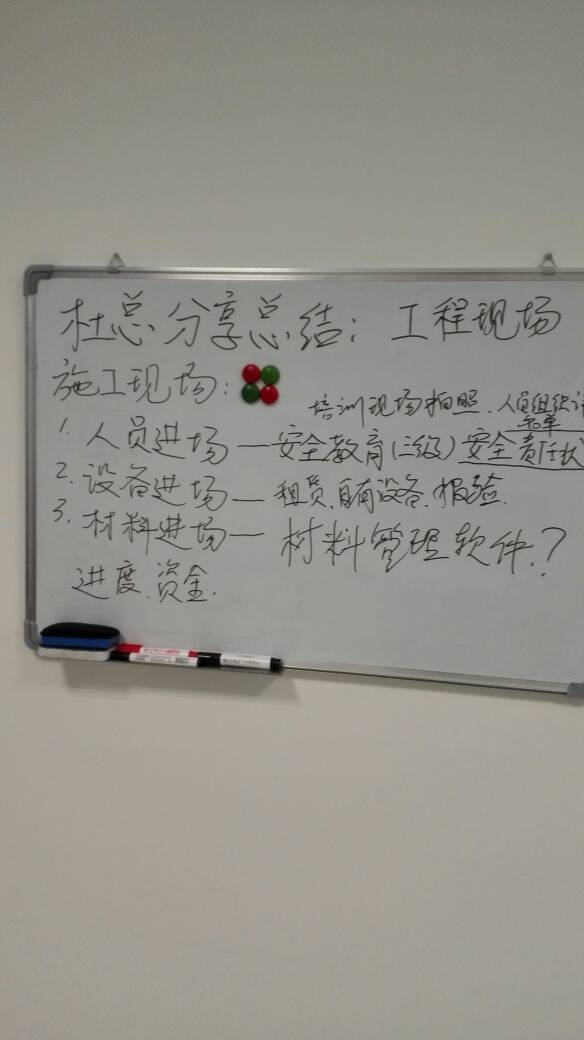 杜总分享总结：工程现场
施工现场：
培训现场拍照、人员组织
名单
1. 人员进场—安全教育(二级)安全责任状
2. 设备进场—租赁、自有设备、报验.
3. 材料进场—材料管理软件.?
进度、资金.